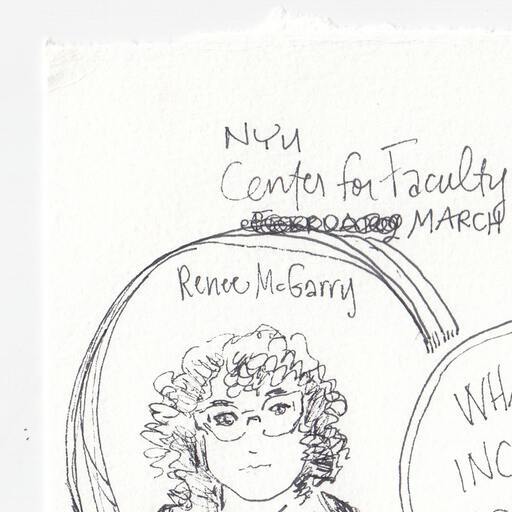 NYU
Center for Faculty
MARCH
Renee McGarry
WHA
INC